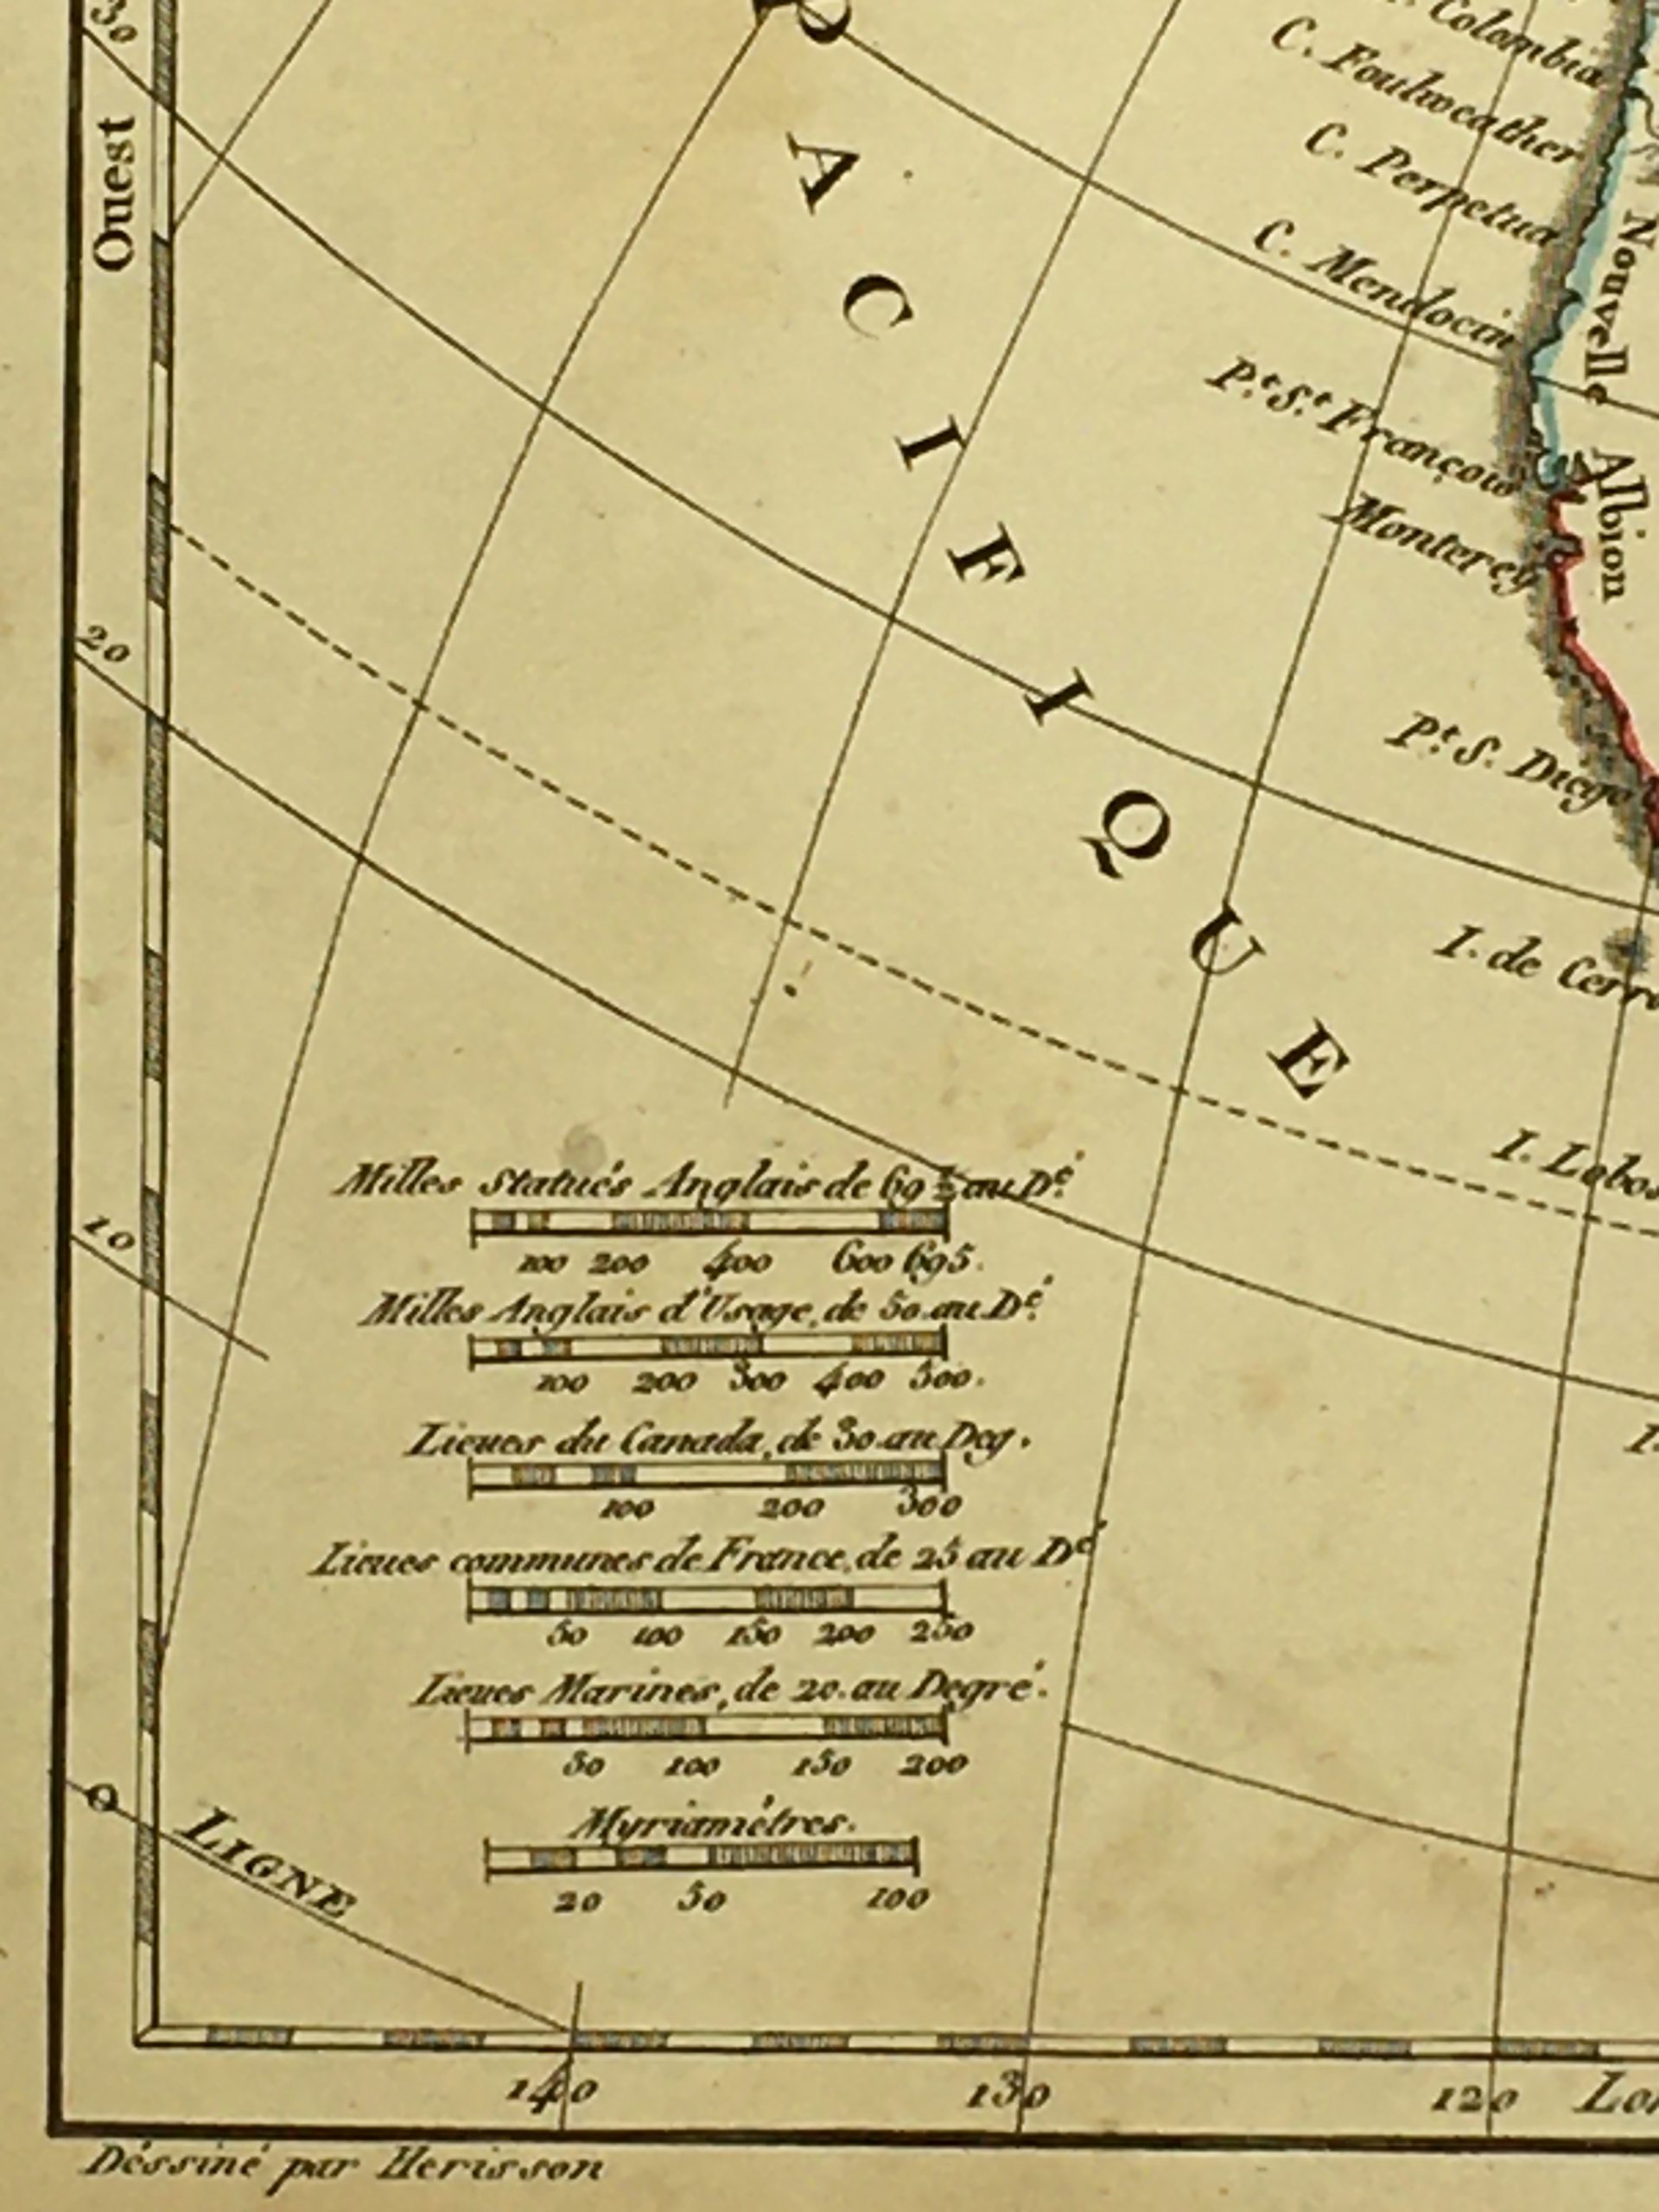 30
Ouest
PACIFIQUE
Colombia
C. Foulweather
C. Perpetua
C. Mendocin
Nouvelle Albion
P.t S.t François
Monterey
P.t S. Diego
I. de Cerro
I. Lobos
20
10
Milles Statués Anglais de 69 ½ au D.é
100 200 400 600 695.
Milles Anglais d'Usage, de 50 au D.é
100 200 300 400 500.
Lieues du Canada, de 30 au Deg.
100 200 300
Lieues communes de France, de 25 au Dé
50 100 150 200 250
Lieues Marines, de 20 au Degré.
50 100 150 200
Myriamètres.
20 50 100
0
LIGNE
140 130 120 Lon
Déssiné par Herisson